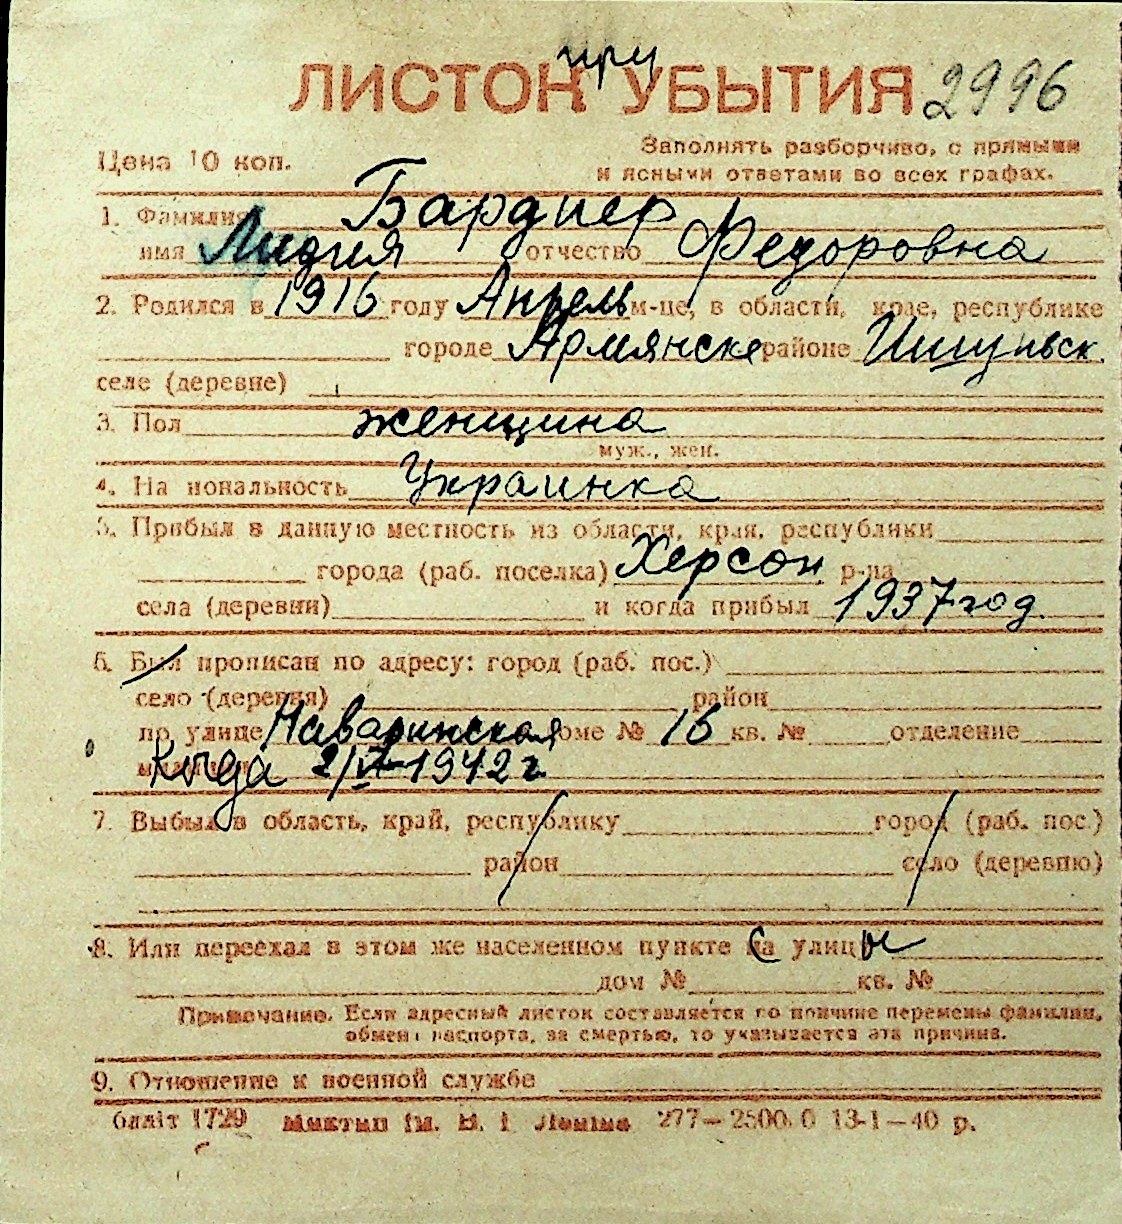 при
ЛИСТОК УБЫТИЯ 2996
Цена 10 коп.
Заполнять разборчиво, с прямыми
и ясными ответами во всех графах.
1. Фамилия Бардиер
имя Лидия отчество Федоровна
2. Родился в 1916 году Апрель м-це, в области, крае, республике
городе Армянске районе
селе (деревне)
3. Пол женщина
муж., жен.
4. Национальность Украинка
5. Прибыл в данную местность из области, края, республики
города (раб. поселка) Херсон р-на
села (деревни) и когда прибыл 1937 год.
6. Был прописан по адресу: город (раб. пос.)
село (деревня) район
по улице Наваринская доме № 16 кв. № отделение
Когда 2/VI-1942 г.
7. Выбыл в область, край, республику город (раб. пос.)
район село (деревню)
8. Или переехал в этом же населенном пункте с улицы
дом № кв. №
Примечание. Если адресный листок составляется по причине перемены фамилии,
обмена паспорта, за смертью, то указывается эта причина.
9. Отношение к военной службе
1729 277—2500.0 13-1—40 р.